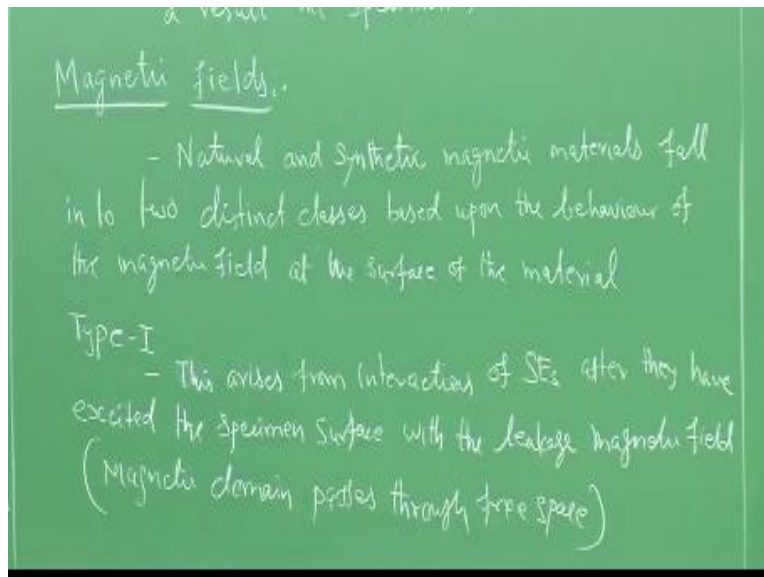 a result the specimen.
Magnetic fields..
- Natural and Synthetic magnetic materials fall
in to two distinct classes based upon the behaviour of
the magnetic field at the surface of the material
Type-I
- This arises from interactions of SEs after they have
excited the specimen surface with the leakage magnetic field
(Magnetic domain passes through free space)